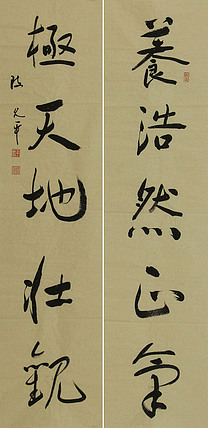 養浩然正氣
極天地壯觀